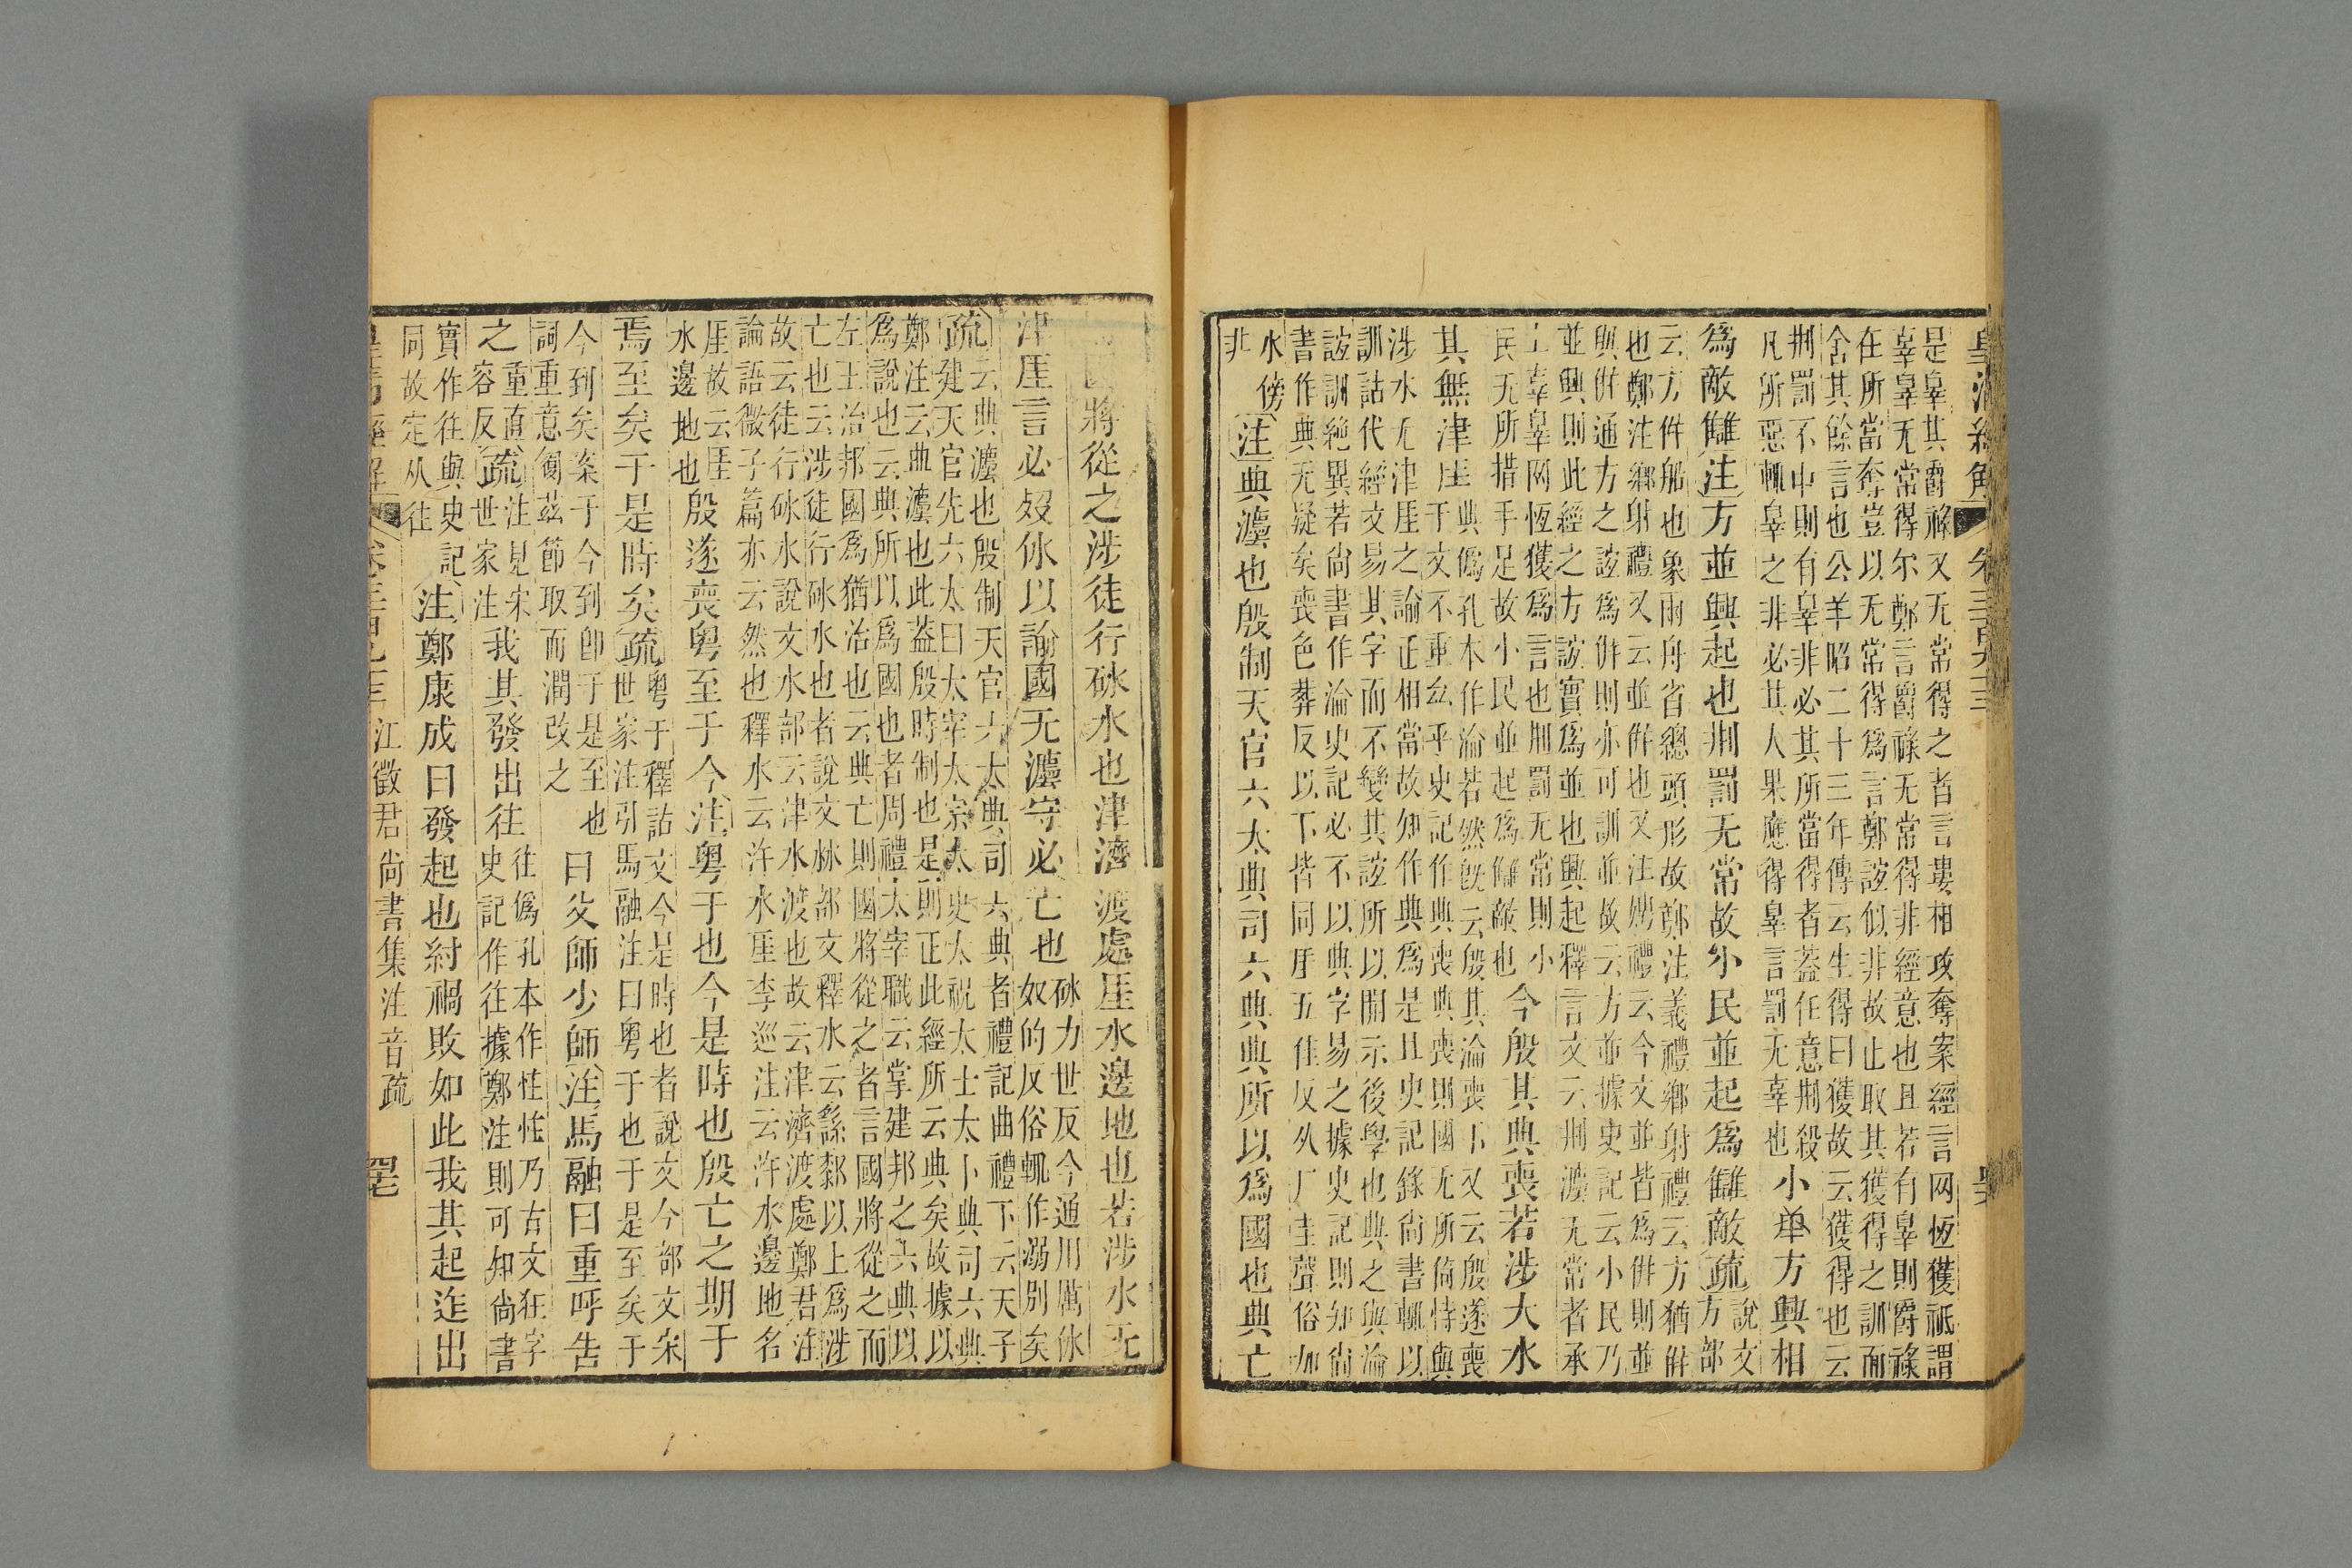 是辠其爵祿又无常得之者言婁相攻奪案經言网恆獲祗謂
辜辠无常得尔鄭言爵祿无常得非經意也且若有辠則爵祿
在所當奪豈以无常得爲言鄭誼似非故止取其獲得之訓而
舍其餘言也公羊昭二十三年傳云生得曰獲故云獲得也云
荆罰不中則有辠非必其所當得者葢任意荆殺
凡所惡輒辠之非必其人果應得辠言罰无辜也
小民方興相
爲敵雔注方並興起也荆罰无常故小民並起爲雔敵疏
說文
方部
云方併船也象兩舟省總頭形故鄭注義禮鄉射禮云方猶併
也鄭注鄉射禮又云並併也又注娉禮云今文並皆爲併則並
與併通方之誼爲併則亦可訓並故云方並據史記云小民乃
並興則此經之方誼實爲並也興起釋言文云荆灋无常者承
上辜辠网恆獲爲言也荆罰无常則小
民无所措手足故小民並起爲雔敵也
今殷其典喪若涉大水
其無津厓
典僞孔本作淪若然旣云殷其淪喪下又云殷遂喪
于文不重絫乎史記作典喪典喪則國无所倚恃與
涉水无津厓之諭正相當故知作典爲是且史記錄尙書輒以
訓詁代經文易其字而不變其誼所以開示後學也典之與淪
誼訓絶異若尙書作淪史記必不以典字易之據史記則知尙
書作典无疑矣喪色葬反以下皆同厓五佳反从厂圭聲俗加
水傍
非
注典灋也殷制天官六太典司六典典所以爲國也典亡
將從之涉徒行砅水也津濟渡處厓水邊地也若涉水无
津厓言必歿休以諭國无灋守必亡也
砅力世反今通用厲休
奴的反俗輒作溺別矣
疏
云典灋也殷制天官六太典司六典者禮記曲禮下云天子
建天官先六太曰太宰太宗太史太祝太士太卜典司六典
鄭注云典灋也此葢殷時制也是則正此經所云典矣故據以
爲說也云典所以爲國也者周禮太宰職云掌建邦之六典以
左王治邦國爲猶治也云典亡則國將從之者言國將從之而
亡也云涉徒行砅水也者說文沝部文釋水云繇厀以上爲涉
故云徒行砅水說文水部云津水渡也故云津濟渡處鄭君注
論語微子篇亦云然也釋水云汻水厓李巡注云汻水邊地名
厓故云厓
水邊地也
殷遂喪粤至于今注粤于也今是時也殷亡之期于
焉至矣于是時矣疏
粤于釋詁文今是時也者說文今部文宋
世家注引馬融注曰粤于也于是至矣于
今到矣案于今到卽于是至也
詞重意複茲節取而潤改之
曰父師少師注馬融曰重呼吿
之
重直
容反
疏
注見宋
世家注
我其發出往
往僞孔本作㹵㹵乃古文狂字
史記作往據鄭注則可知尙書
實作往與史記
同故定从往
注鄭康成曰發起也紂禍敗如此我其起迮出
江徵君尙書集注音疏